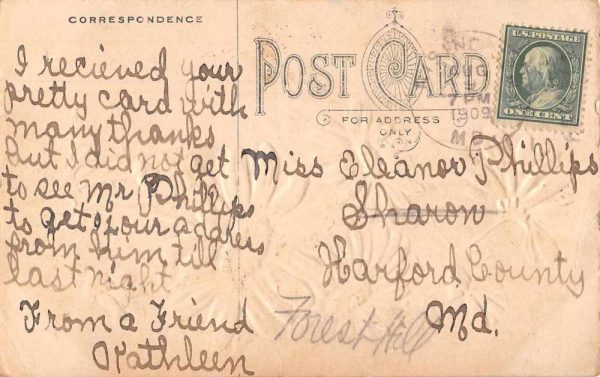 CORRESPONDENCE
I recieved your
pretty card with
many thanks
but I did not get
to see Mr Phillips
to get your address
from him till
last night
From a Friend
Kathleen
POST CARD
FOR ADDRESS
ONLY
AUG
7 PM
1909
U.S. POSTAGE
ONE CENT
Miss Eleanor Phillips
Sharon
Harford County
Md.
Forest Hill